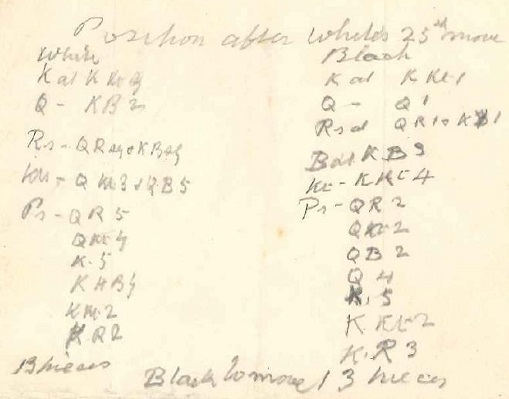 Position after white's 25th move
White
Black
K at K Kt sq
K at K Kt 1
Q - KB 2
Q - Q 1
Rs - QR sq & KB sq
Rs at QR 1 & KB 1
B at KB 3
Kts - Q Kt 3 & QB 5
Kt - K Kt 4
Ps - QR 5
Ps - QR 2
Q Kt 4
Q Kt 2
QB 2
K 5
Q 4
K B 4
K 5
K Kt 2
K Kt 2
K R 2
K R 3
13 pieces
Black to move 13 pieces